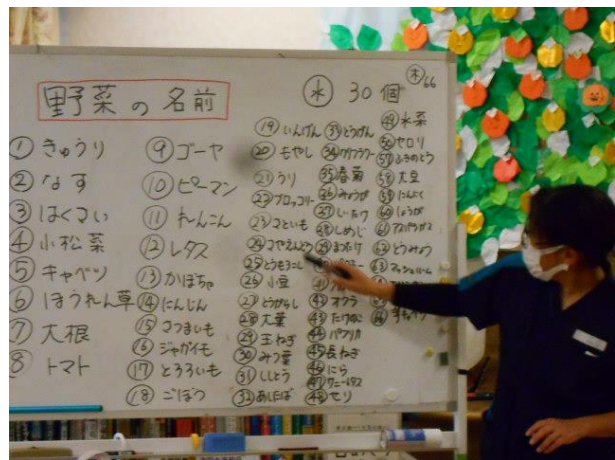 野菜の名前
㊌ 30個 ㊍66
① きゅうり
② なす
③ はくさい
④ 小松菜
⑤ キャベツ
⑥ ほうれん草
⑦ 大根
⑧ トマト
⑨ ゴーヤ
⑩ ピーマン
⑪ れんこん
⑫ レタス
⑬ かぼちゃ
⑭ にんじん
⑮ さつまいも
⑯ ジャガイモ
⑰ とろろいも
⑱ ごぼう
⑲ いんげん
⑳ もやし
㉑ うり
㉒ ブロッコリー
㉓ さといも
㉔ さやえんどう
㉕ とうもろこし
㉖ 小豆
㉗ とうがらし
㉘ 大葉
㉙ 玉ねぎ
㉚ みつ葉
㉛ ししとう
㉜ あしたば
㉝ とうがん
㉞ カリフラワー
㉟ 春菊
㊱ みょうが
㊲ しいたけ
㊳ しめじ
㊴ まつたけ
㊷ オクラ
㊸ たけのこ
㊹ パプリカ
㊺ 長ねぎ
㊻ にら
㊼ サニーレタス
㊽ せり
㊾ 水菜
56 セロリ
57 ふきのとう
58 大豆
59 にんにく
60 しょうが
61 アスパラガス
62 とうみょう
63 マッシュルーム